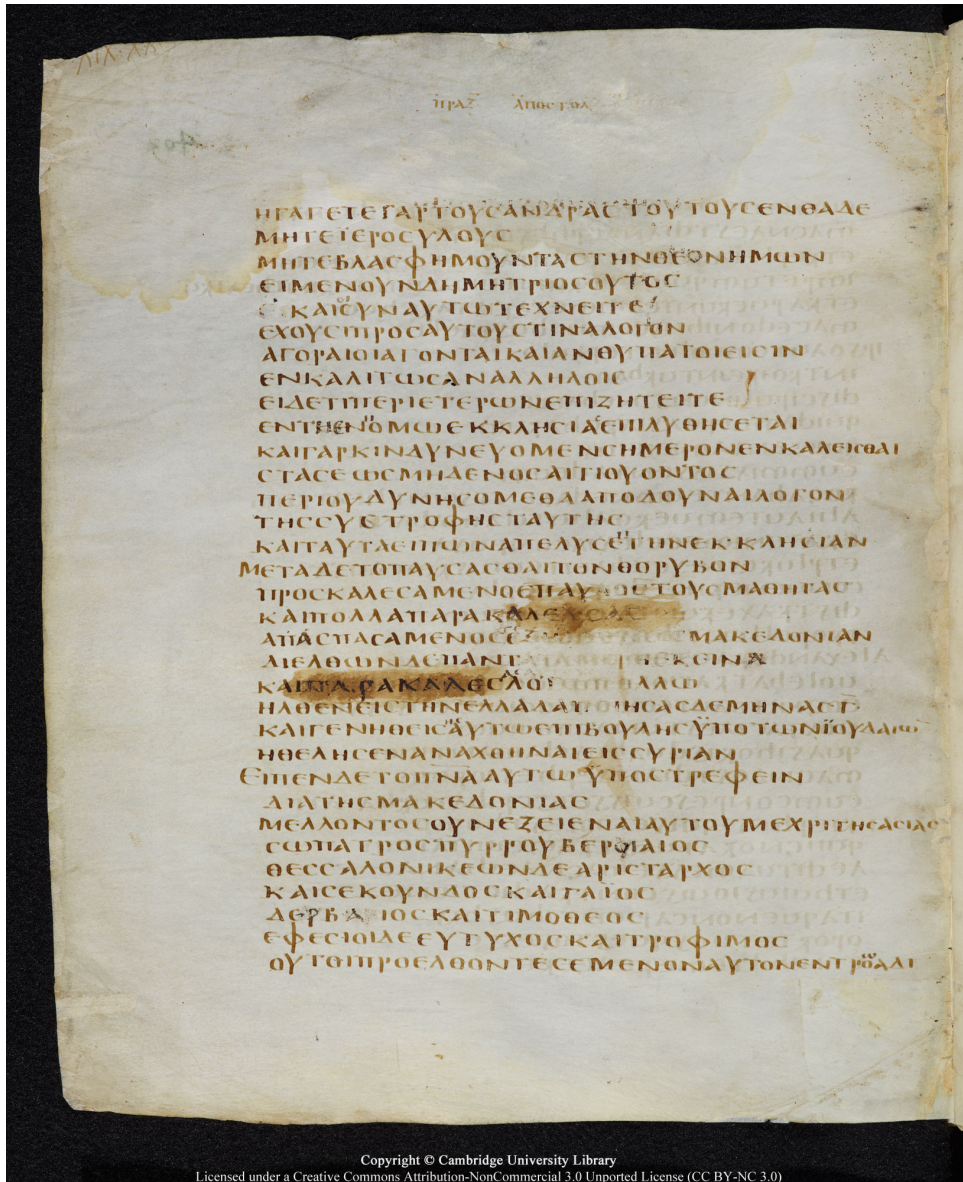 ΠΡΑΞ ΑΠΟΣΤΟΛ
ΗΓΑΓΕΤΕΓΑΡΤΟΥΣΑΝΔΡΑΣΤΟΥΤΟΥΣΕΝΘΑΔΕ
ΜΗΤΕΙΕΡΟΣΥΛΟΥΣ
ΜΗΤΕΒΛΑΣΦΗΜΟΥΝΤΑΣΤΗΝΘΕΟΝΗΜΩΝ
ΕΙΜΕΝΟΥΝΔΗΜΗΤΡΙΟΣΟΥΤΟΣ
ΚΑΙΟΙΣΥΝΑΥΤΩΤΕΧΝΕΙΤΕ
ΕΧΟΥΣΙΠΡΟΣΑΥΤΟΥΣΤΙΝΑΛΟΓΟΝ
ΑΓΟΡΑΙΟΙΑΓΟΝΤΑΙΚΑΙΑΝΘΥΠΑΤΟΙΕΙΣΙΝ
ΕΝΚΑΛΙΤΩΣΑΝΑΛΛΗΛΟΙΣ
ΕΙΔΕΤΙΠΕΡΙΕΤΕΡΩΝΕΠΙΖΗΤΕΙΤΕ
ΕΝΤΗΕΝΟΜΩΕΚΚΛΗΣΙΑΕΠΙΛΥΘΗΣΕΤΑΙ
ΚΑΙΓΑΡΚΙΝΔΥΝΕΥΟΜΕΝΣΗΜΕΡΟΝΕΝΚΑΛΕΙΣΘΑΙ
ΣΤΑΣΕΩΣΜΗΔΕΝΟΣΑΙΤΙΟΥΟΝΤΟΣ
ΠΕΡΙΟΥΔΥΝΗΣΟΜΕΘΑΑΠΟΔΟΥΝΑΙΛΟΓΟΝ
ΤΗΣΣΥΣΤΡΟΦΗΣΤΑΥΤΗΣ
ΚΑΙΤΑΥΤΑΕΙΠΩΝΑΠΕΛΥΣΕΤΗΝΕΚΚΛΗΣΙΑΝ
ΜΕΤΑΔΕΤΟΠΑΥΣΑΣΘΑΙΤΟΝΘΟΡΥΒΟΝ
ΠΡΟΣΚΑΛΕΣΑΜΕΝΟΣΠΑΥΛΟΣΤΟΥΣΜΑΘΗΤΑΣ
ΚΑΙΠΟΛΛΑΠΑΡΑΚΑΛΕΣΑΣ
ΑΠΑΣΠΑΣΑΜΕΝΟΣΕΞ ΜΑΚΕΔΟΝΙΑΝ
ΔΙΕΛΘΩΝΔΕΠΑΝΤ ΕΚΕΙΝΑ
ΚΑΙΠΑΡΑΚΑΛΕΣΑΣ ΛΛΩ
ΗΛΘΕΝΕΙΣΤΗΝΕΛΛΑΔΑ ΗΣΑΣΔΕΜΗΝΑΣΓ
ΚΑΙΓΕΝΗΘΕΙΣΑΥΤΩΕΠΙΒΟΥΛΗΣΥΠΟΤΩΝΙΟΥΔΑΙΩ
ΗΘΕΛΗΣΕΝΑΝΑΧΘΗΝΑΙΕΙΣΣΥΡΙΑΝ
ΕΙΠΕΝΔΕΤΟΠΝΑΑΥΤΩΥΠΟΣΤΡΕΦΕΙΝ
ΔΙΑΤΗΣΜΑΚΕΔΟΝΙΑΣ
ΜΕΛΛΟΝΤΟΣΟΥΝΕΞΕΙΕΝΑΙΑΥΤΟΥΜΕΧΡΙΤΗΣΑΣΙΑΣ
ΣΩΠΑΤΡΟΣΠΥΡΡΟΥΒΕΡΟΙΑΙΟΣ
ΘΕΣΣΑΛΟΝΙΚΕΩΝΔΕΑΡΙΣΤΑΡΧΟΣ
ΚΑΙΣΕΚΟΥΝΔΟΣΚΑΙΓΑΙΟΣ
ΔΕΡΒΑΙΟΣΚΑΙΤΙΜΟΘΕΟΣ
ΕΦΕΣΙΟΙΔΕΕΥΤΥΧΟΣΚΑΙΤΡΟΦΙΜΟΣ
ΟΥΤΟΙΠΡΟΕΛΘΟΝΤΕΣΕΜΕΝΟΝΑΥΤΟΝΕΝΤΡΩΑΔΙ
Copyright © Cambridge University Library
Licensed under a Creative Commons Attribution-NonCommercial 3.0 Unported License (CC BY-NC 3.0)